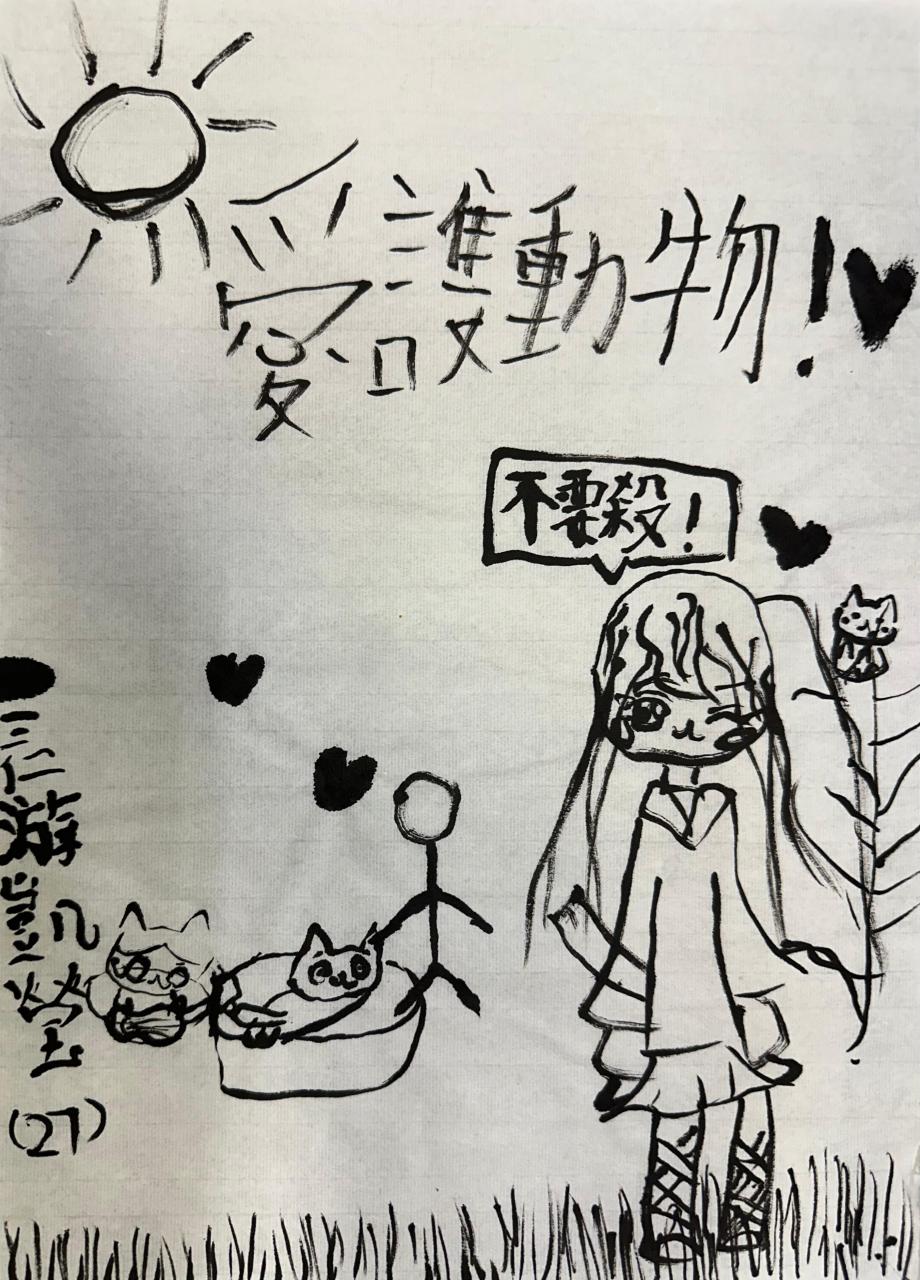 愛護動物!
不要殺!
三仁游凱瑩
(27)